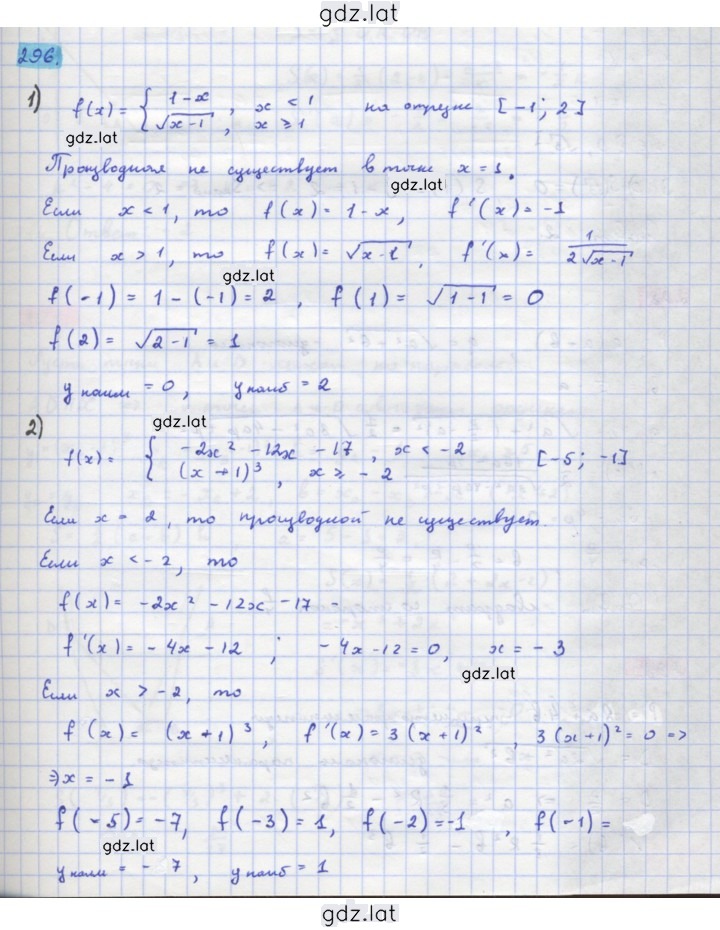 gdz.lat
296.
1) f(x) = { 1-x , x < 1 на отрезке [-1; 2]
√(x-1) , x ⩾ 1
gdz.lat
Производная не существует в точке x = 1.
gdz.lat
Если x < 1, то f(x) = 1-x, f'(x) = -1
Если x > 1, то f(x) = √(x-1), f'(x) = 1/(2√(x-1))
gdz.lat
f(-1) = 1 - (-1) = 2 , f(1) = √(1-1) = 0
f(2) = √(2-1) = 1
y наим = 0, y наиб = 2
gdz.lat
2) f(x) = { -2x² - 12x - 17 , x < -2 [-5; -1]
(x+1)³ , x ⩾ -2
Если x = 2, то производной не существует.
Если x < -2, то
f(x) = -2x² - 12x - 17 -
f'(x) = -4x - 12 ; -4x - 12 = 0, x = -3
gdz.lat
Если x > -2, то
f(x) = (x+1)³, f'(x) = 3(x+1)² , 3(x+1)² = 0 =>
=> x = -1
f(-5) = -7, f(-3) = 1, f(-2) = -1 , f(-1) =
gdz.lat
y наим = -7, y наиб = 1
gdz.lat